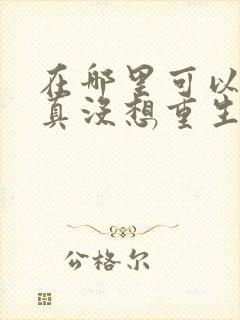 在哪里可以
真没想重生
公格尔